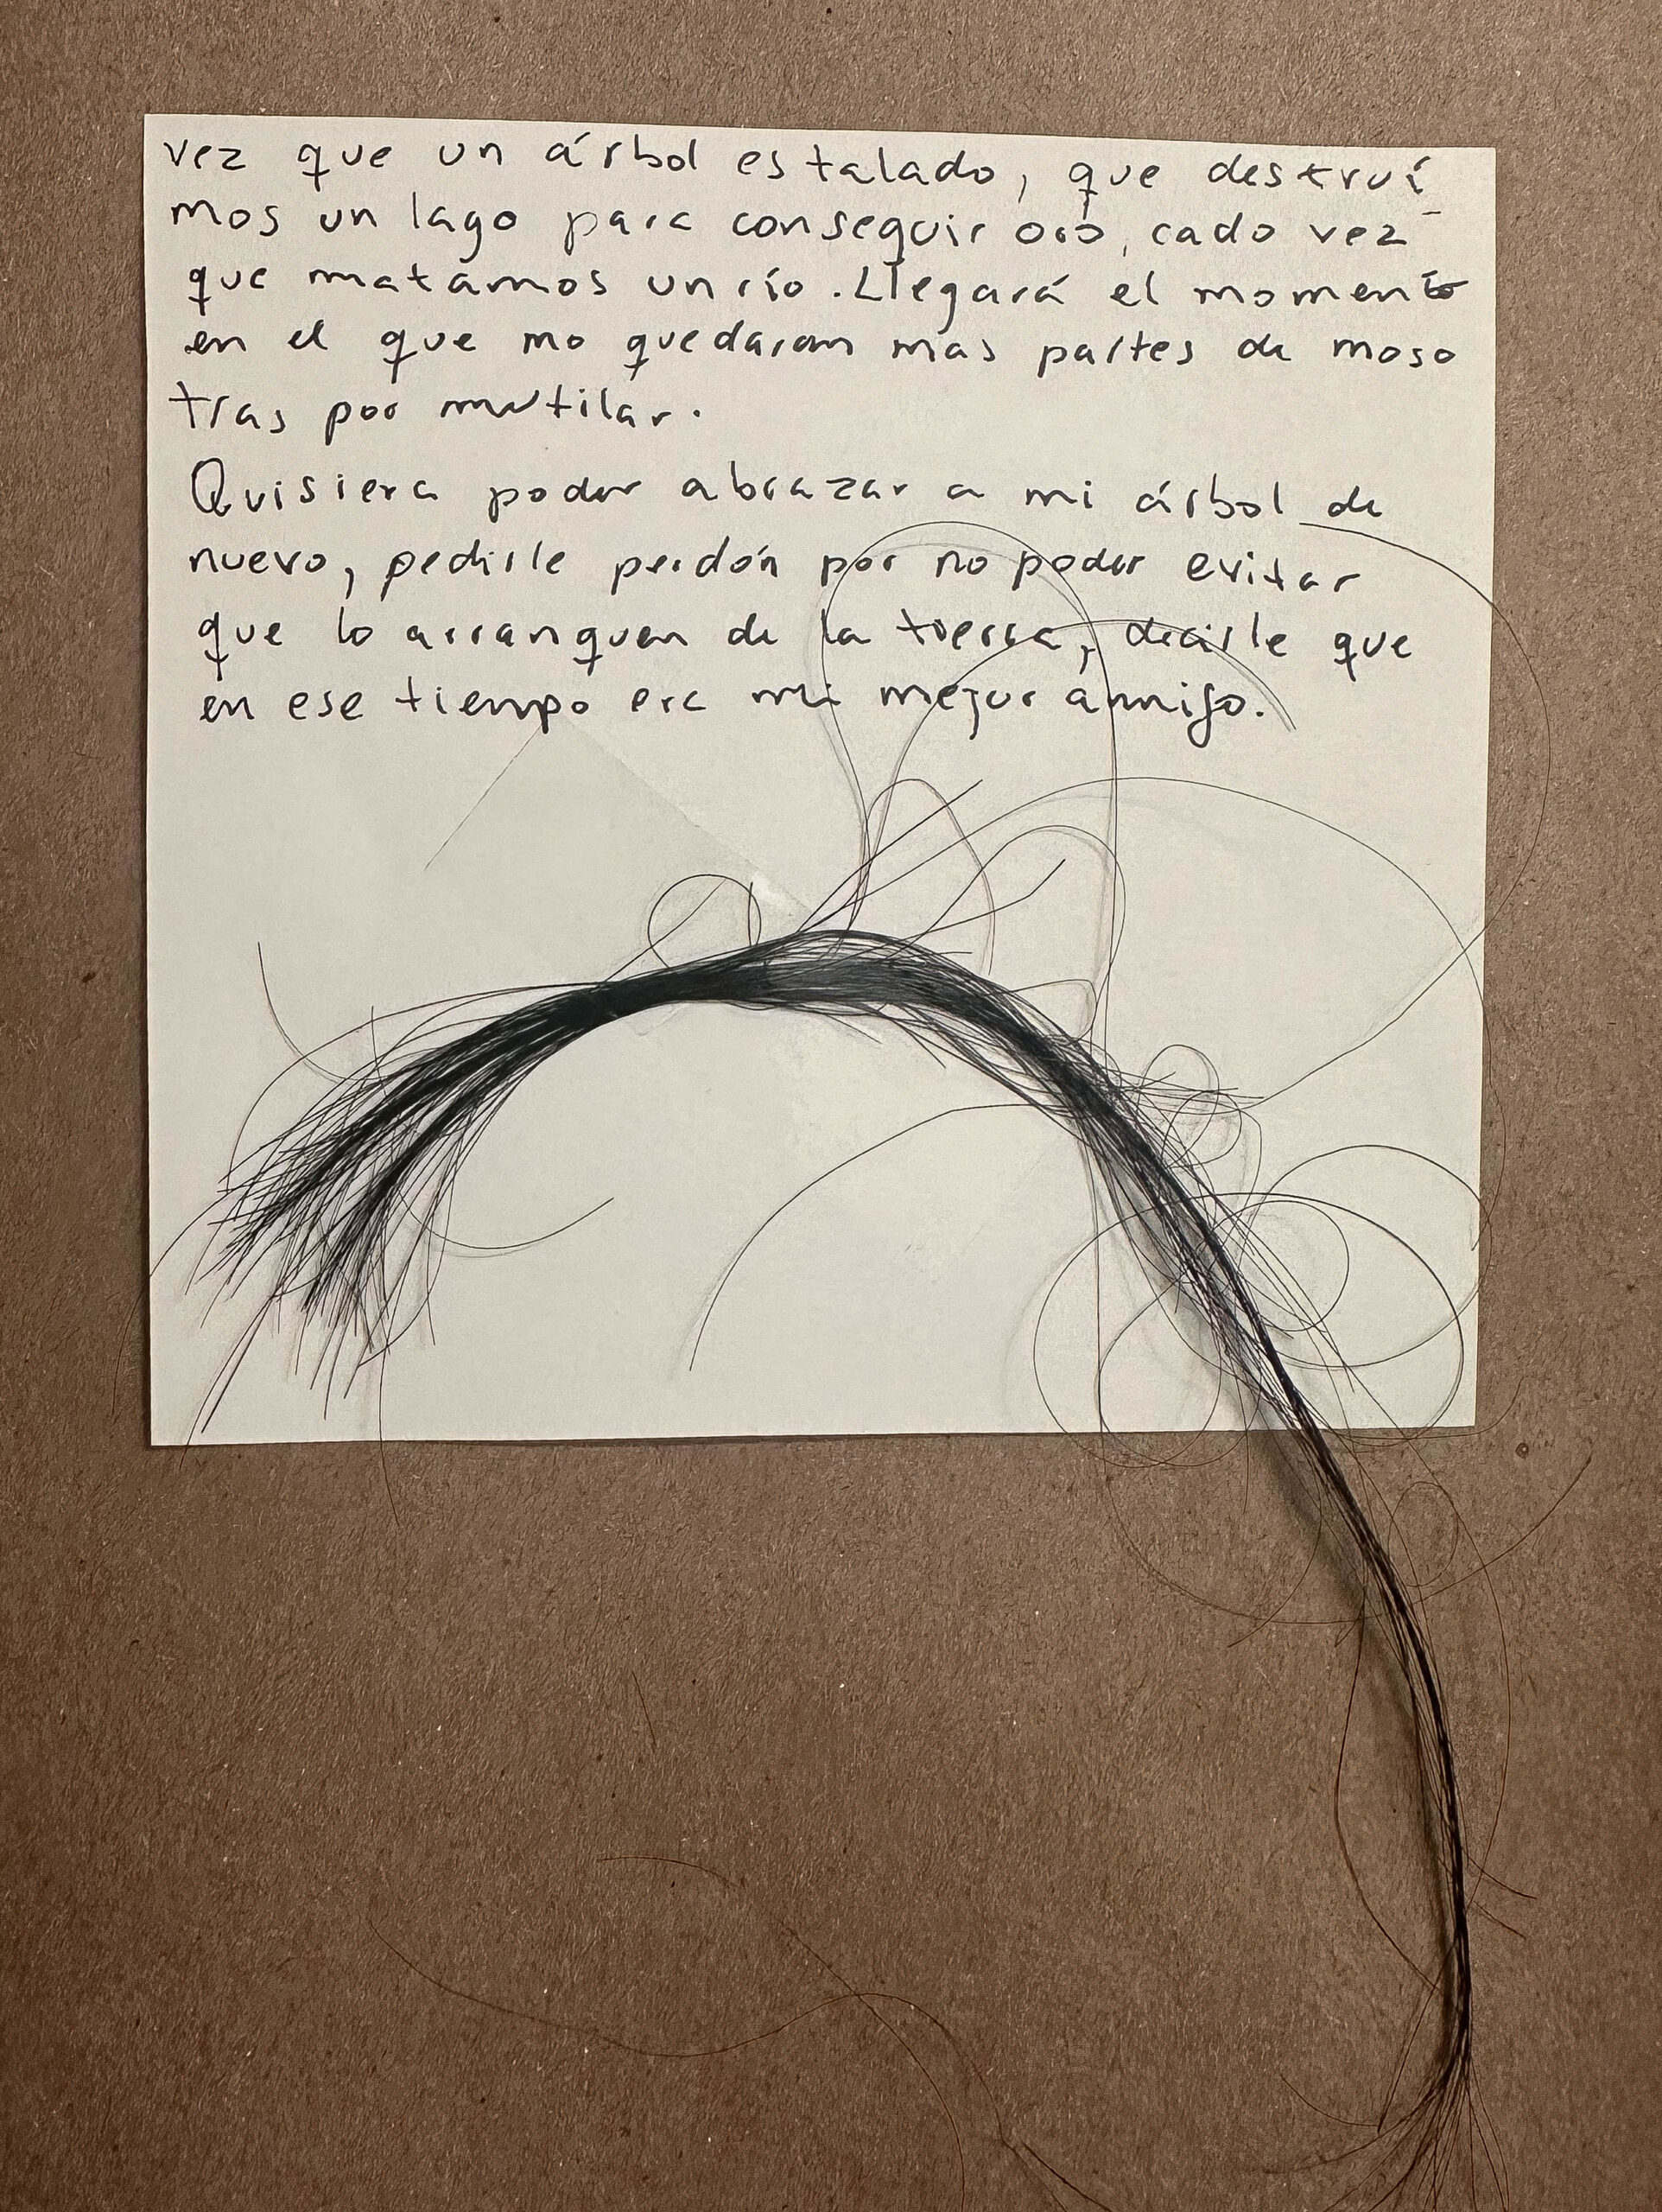 vez que un árbol es talado, que destruí
mos un lago para conseguir oro, cada vez
que matamos un río. Llegará el momento
en el que no quedaran mas partes de noso
tras por mutilar.
Quisiera poder abrazar a mi árbol de
nuevo, pedirle perdón por no poder evitar
que lo arranquen de la tierra, decirle que
en ese tiempo era mi mejor amigo.